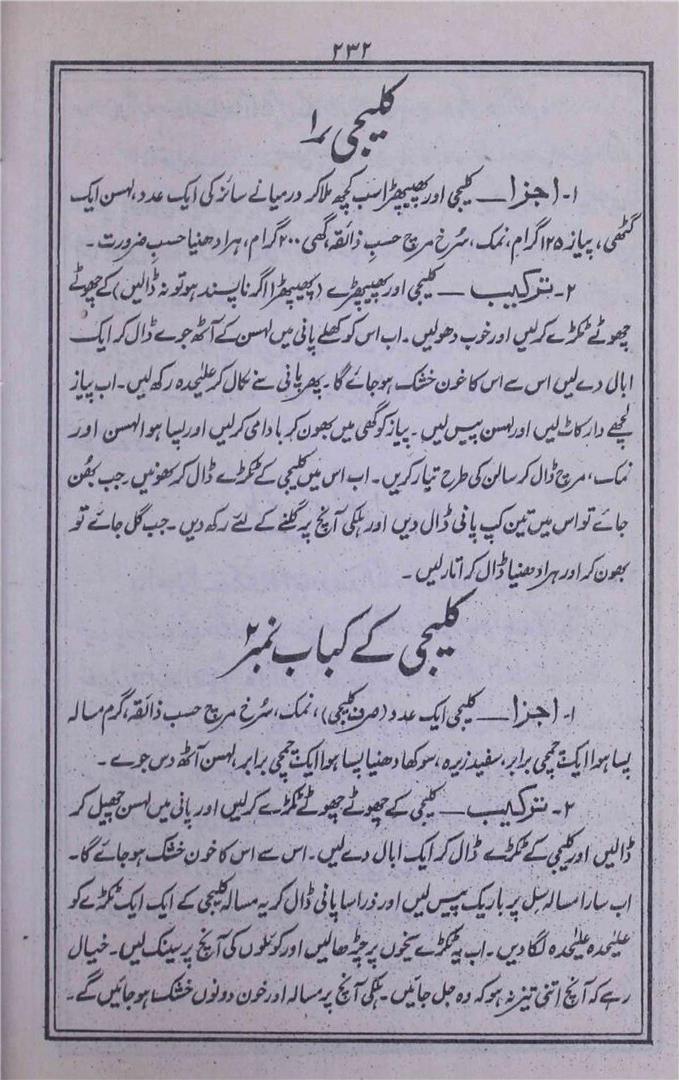 ۲۳۲
کلیجی نمبر ۱
۱۔ اجزا — کلیجی اور پھیپھڑا سب کچھ ملا کر درمیانے سائز کی ایک عدد، لہسن ایک
گٹھی، پیاز ۱۲۵ گرام، نمک، سُرخ مرچ حسبِ ذائقہ، گھی ۲۰۰ گرام، ہرا دھنیا حسبِ ضرورت۔
۲۔ ترکیب — کلیجی اور پھیپھڑے (پھیپھڑا اگر ناپسند ہو تو نہ ڈالیں) کے چھوٹے
چھوٹے ٹکڑے کر لیں اور خوب دھو لیں۔ اب اس کو کھلے پانی میں لہسن کے آٹھ جوے ڈال کر ایک
ابال دے لیں اس سے اس کا خون خشک ہو جائے گا۔ پھر پانی سے نکال کر علیٰحدہ رکھ لیں۔ اب پیاز
لچھے دار کاٹ لیں اور لہسن پیس لیں۔ پیاز کو گھی میں بھون کر بادامی کر لیں اور پسا ہوا لہسن اور
نمک، مرچ ڈال کر سالن کی طرح تیار کریں۔ اب اس میں کلیجی کے ٹکڑے ڈال کر بھونیں۔ جب بھُن
جائے تو اس میں تین کپ پانی ڈال دیں اور ہلکی آنچ پر گلنے کے لئے رکھ دیں۔ جب گل جائے تو
بھون کر اور ہرا دھنیا ڈال کر اتار لیں۔
کلیجی کے کباب نمبر ۲
۱۔ اجزا — کلیجی ایک عدد (صرف کلیجی)، نمک، سُرخ مرچ حسب ذائقہ، گرم مسالہ
پسا ہوا ایک چمچی برابر، سفید زیرہ، سوکھا دھنیا پسا ہوا ایک چمچی برابر، لہسن آٹھ دس جوے۔
۲۔ ترکیب — کلیجی کے چھوٹے چھوٹے ٹکڑے کر لیں اور پانی میں لہسن چھیل کر
ڈالیں اور کلیجی کے ٹکڑے ڈال کر ایک ابال دے لیں۔ اس سے اس کا خون خشک ہو جائے گا۔
اب سارا مسالہ سِل پر باریک پیس لیں اور ذرا سا پانی ڈال کر یہ مسالہ کلیجی کے ایک ایک ٹکڑے کو
علیٰحدہ علیٰحدہ لگا دیں۔ اب یہ ٹکڑے سیخوں پر چڑھا لیں اور کوئلوں کی آنچ پر سینک لیں۔ خیال
رہے کہ آنچ اتنی تیز نہ ہو کہ وہ جل جائیں۔ ہلکی آنچ پر مسالہ اور خون دونوں خشک ہو جائیں گے۔